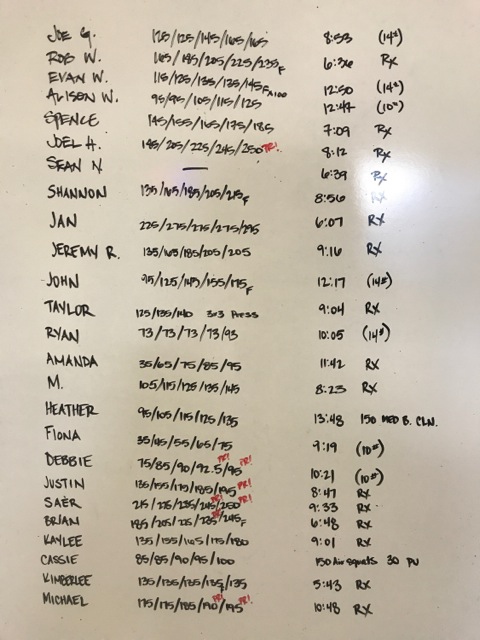 JOE G. 125/125/145/165/165 8:53 (14#)
ROB W. 165/185/205/225/235F 6:36 Rx
EVAN W. 115/125/135/135/145F 12:50 (14#)
ALISON W. 95/95/105/115/125 12:47 (10#)
SPENCE 145/155/165/175/185 7:09 Rx
JOEL H. 185/205/225/245/250 PR! 8:12 Rx
SEAN N — 6:39 Rx
SHANNON 135/165/185/205/215F 8:56 Rx
JAN 225/275/275/275/295 6:07 RX
JEREMY R. 135/165/185/205/205 9:16 RX
JOHN 95/125/145/155/175F 12:17 (14#)
TAYLOR 125/135/140 3x3 Press 9:04 RX
RYAN 73/73/73/73/93 10:05 (14#)
AMANDA 35/65/75/85/95 11:42 RX
M. 105/115/125/135/145 8:23 RX
HEATHER 95/105/115/125/135 13:48 150 MED B. CLN.
FIONA 35/45/55/65/75 9:19 (10#)
DEBBIE 75/85/90/92.5/95 PR! PR! 10:21 (10#)
JUSTIN 135/155/175/185/195 PR! 8:47 RX
SAER 215/225/235/245/250 PR! PR! 9:33 RX
BRIAN 185/205/225/235/245F PR! 6:48 RX
KAYLEE 135/155/165/175/180 9:01 RX
CASSIE 85/85/90/95/100 150 Air squats 30 PU
KIMBERLEE 135/135/135/135/135 5:43 RX
MICHAEL 175/175/185/190/195 PR! PR! 10:48 RX